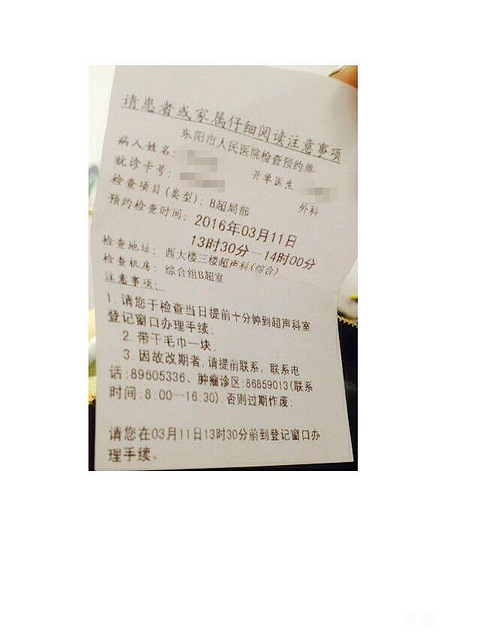 请患者或家属仔细阅读注意事项
东阳市人民医院检查预约单
病人姓名: 开单医生
就诊卡号: 外科
检查项目(类型): B超局部
预约检查时间: 2016年03月11日
13时30分—14时00分
检查地址: 西大楼三楼超声科(综合)
检查机房: 综合组B超室
注意事项:
1. 请您于检查当日提前十分钟到超声科室
登记窗口办理手续;
2. 带干毛巾一块;
3. 因故改期者,请提前联系。联系电
话:89605336、肿瘤诊区:86859013(联系
时间:8:00—16:30).否则过期作废;
请您在03月11日13时30分前到登记窗口办
理手续。